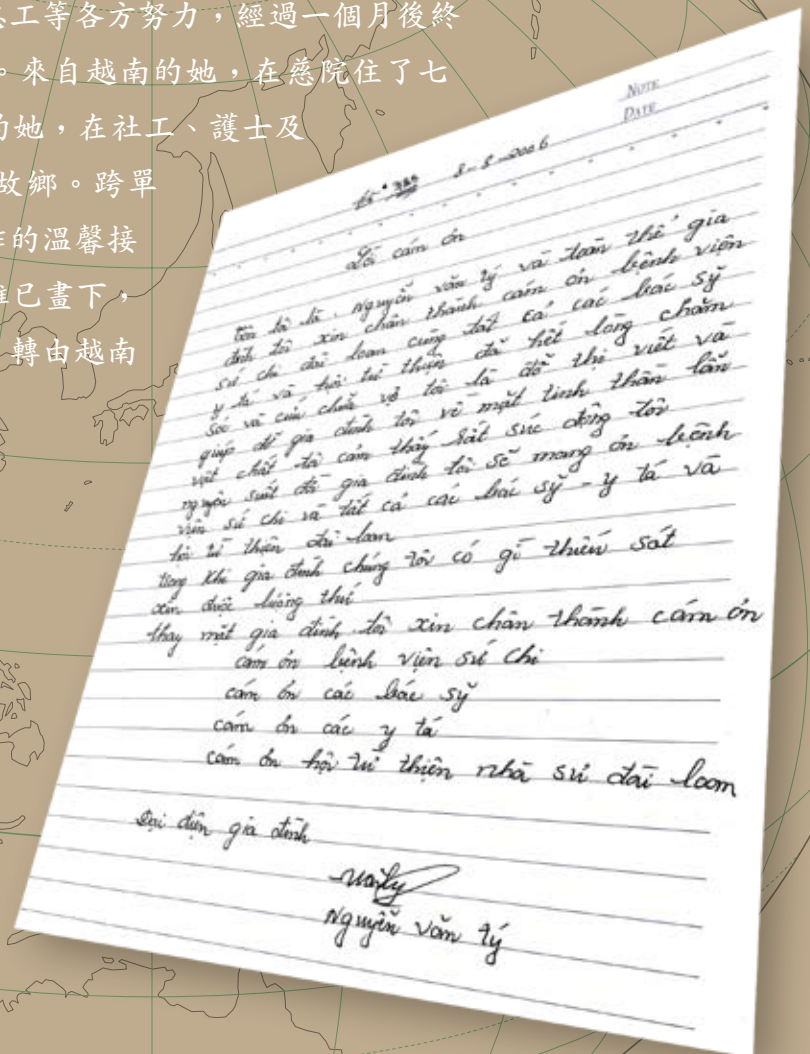 工等各方努力，經過一個月後終
。來自越南的她，在慈院住了七
的她，在社工、護士及
故鄉。跨單
的溫馨接
已畫下，
轉由越南
NOTE
DATE
8-8-2006
Lời cảm ơn
tôn tôi là. Nguyễn văn lý và toàn thể gia
đình tôi xin chân thành cám ơn bệnh viện
sư chi đài loan cùng tất cả các bác sỹ
y tá và hội từ thiện đã hết lòng chăm
sóc và cứu chữa vợ tôi là đỗ thị viết và
giúp đỡ gia đình tôi về mặt tinh thần lẫn
vật chất tôi cảm thấy rất sức động tôi
nguyện suốt đời gia đình tôi sẽ mang ơn bệnh
viện sư chi và tất cả các bác sỹ - y tá và
hội từ thiện đài loan
trong khi gia đình chúng tôi có gì thiếu sót
xin được lượng thứ
thay mặt gia đình tôi xin chân thành cám ơn
cám ơn bệnh viện sư chi
cám ơn các bác sỹ
cám ơn các y tá
cám ơn hội từ thiện nhà sư đài loan
Đại diện gia đình
Nguyễn văn lý